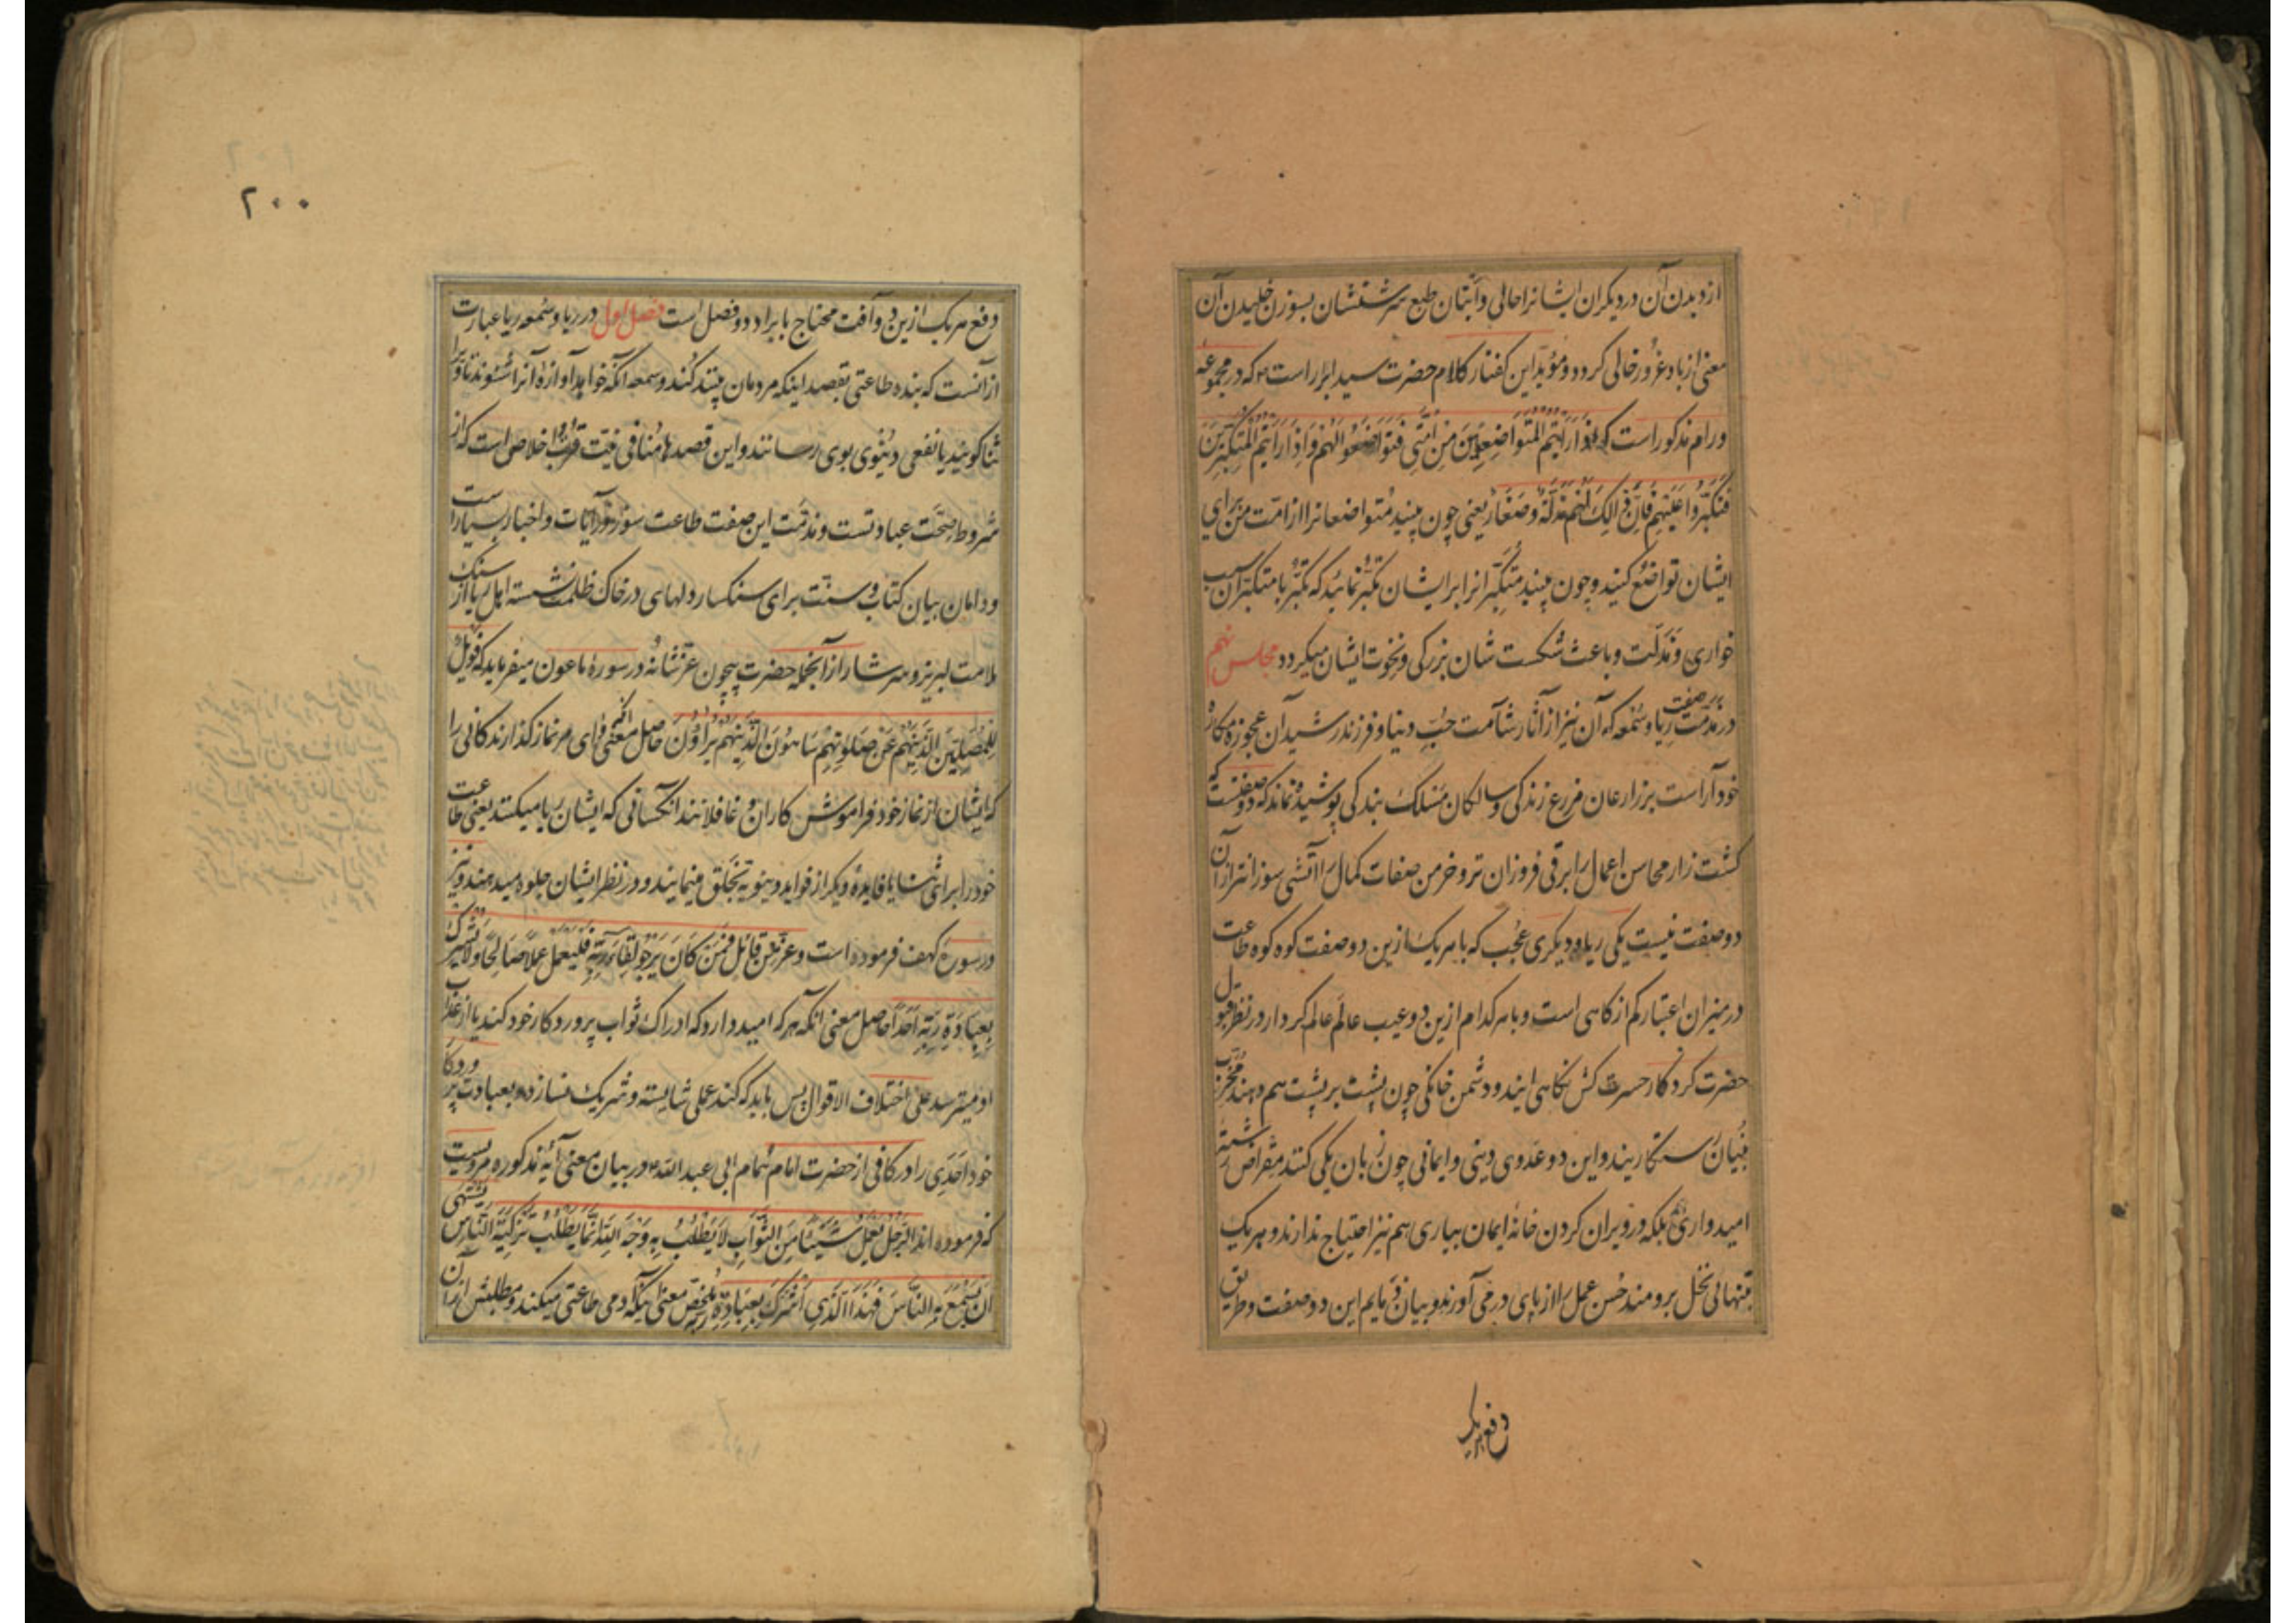 از دیدن آن در دیگران ایشانرا حالی و انبان طبع سرشتشان بسوزن خلیدن آن
معنی از باد غرور خالی کردد و مؤید این کفتار کلام حضرت سید ابرار است ۴ که در مجموعه
ورام مذکور است که اِذَا رَاَیْتُمُ الْمُتَوَاضِعِینَ مِنْ اُمَّتِی فَتَوَاضَعُوا لَهُمْ وَاِذَا رَاَیْتُمُ الْمُتَکَبِّرِینَ
فَتَکَبَّرُوا عَلَیْهِمْ فَاِنَّ ذٰلِکَ لَهُمْ مَذَلَّةٌ وَصَغَارٌ یعنی چون بینید متواضعانرا از امت من برای
ایشان تواضع کنید و چون بینید متکبّرانرا بر ایشان تکبّر نمائید که تکبّر با متکبّران سبب
خواری و مذلّت و باعث شکست شان بزرکی و نخوت ایشان میکردد مجلس نهم
در مذمّت صفت ریا و سُمعه که آن نیز از آثار شآمت حُبّ دنیا و فرزند رشید آن عجوزه مکاره
خودآراست بر زارعان مزرع زندکی و سالکان مسلک بندکی پوشیده نماند که دو صفتست که
کشت زار محاسن اعمال را برقی فروزان تر و خرمن صفات کمال را آتشی سوزانتر از آن
دو صفت نیست یکی ریا و دیکری عُجب که با هر یک از این دو صفت کوه کوه طاعت
در میزان اعتبار کم از کاهی است و با هر کدام از این دو عیب عالَم عالَم کردار در نظر قبول
حضرت کردکار حسرت کش نکاهی ایندو دشمن خانکی چون پشت بر پشت هم دهند مخرّب
بنیان رستکاریند و این دو عدوی دینی و ایمانی چون زبان یکی کنند مقراض رشتهٔ
امیدواری بلکه در ویران کردن خانهٔ ایمان بیاری هم نیز احتیاج ندارند و هر یک
بتنهائی نخل برومند حُسن عمل را از پای در می آورند و بیان ذمایم این دو صفت و طریق
دفع هر یک
۲۰۰
دفع هر یک ازین دو آفت محتاج بایراد دو فصل است فصل اول در ریا و سُمعه ریا عبارت
از آنست که بنده طاعتی بقصد اینکه مردمان بینند کُند و سمعه آنکه خواهد آوازهٔ آنرا شنوند تا او را
ثنا کویند یا نفعی دنیوی بوی رسانند و این قصدها مُنافی نیّت قربت و اخلاص است که از
شروط صحّت عبادتست و مذمّت این صفت طاعت سوز در آیات و اخبار بسیار است
و دامان بیان کتاب و سنّت برای سنکسار دلهای در خاک ظلمت نشسته اهل ریا از سنک
ملامت لبریز و سرشار از آنجمله حضرت بیچون عزّ شأنه در سورهٔ ماعون میفرماید که فَوَیْلٌ
لِلْمُصَلِّینَ الَّذِینَ هُمْ عَنْ صَلٰوتِهِمْ سَاهُونَ الَّذِینَ هُمْ یُرَاؤُنَ حاصل معنی آنکه وای مر نماز کذارندکانی را
که ایشان از نماز خود فراموش کاران و غافلانند آنکسانی که ایشان ریا میکنند یعنی طاعت
خود را برای ثنا یا فایدهٔ دیکر از فواید دنیویه بخلق مینمایند و در نظر ایشان جلوه میدهند و نیز
در سورهٔ کهف فرموده است و عزّ من قائل فَمَنْ کَانَ یَرْجُوا لِقَاءَ رَبِّهِ فَلْیَعْمَلْ عَمَلًا صَالِحًا وَلَا یُشْرِکْ
بِعِبَادَةِ رَبِّهِ اَحَدًا حاصل معنی آنکه هر که امید دارد که ادراک ثواب پروردکار خود کند یا از عذاب
او میترسد علی اختلاف الاقوال پس باید که کند عملی شایسته و شریک نسازد بعبادت پروردکار
خود احدی را در کافی از حضرت امام همام ابی عبد الله ۴ در بیان معنی آیهٔ مذکوره مرویست
که فرموده اند الرَّجُلُ یَعْمَلُ شَیْئًا مِنَ الثَّوَابِ لَا یَطْلُبُ بِهِ وَجْهَ اللهِ اِنَّمَا یَطْلُبُ تَزْکِیَةَ النَّاسِ یَشْتَهِی
اَنْ یُسْمِعَ بِهِ النَّاسَ فَهٰذَا الَّذِی اَشْرَکَ بِعِبَادَةِ رَبِّهِ ملخّص معنی اینکه آدمی طاعتی میکند و مطلبش از آن